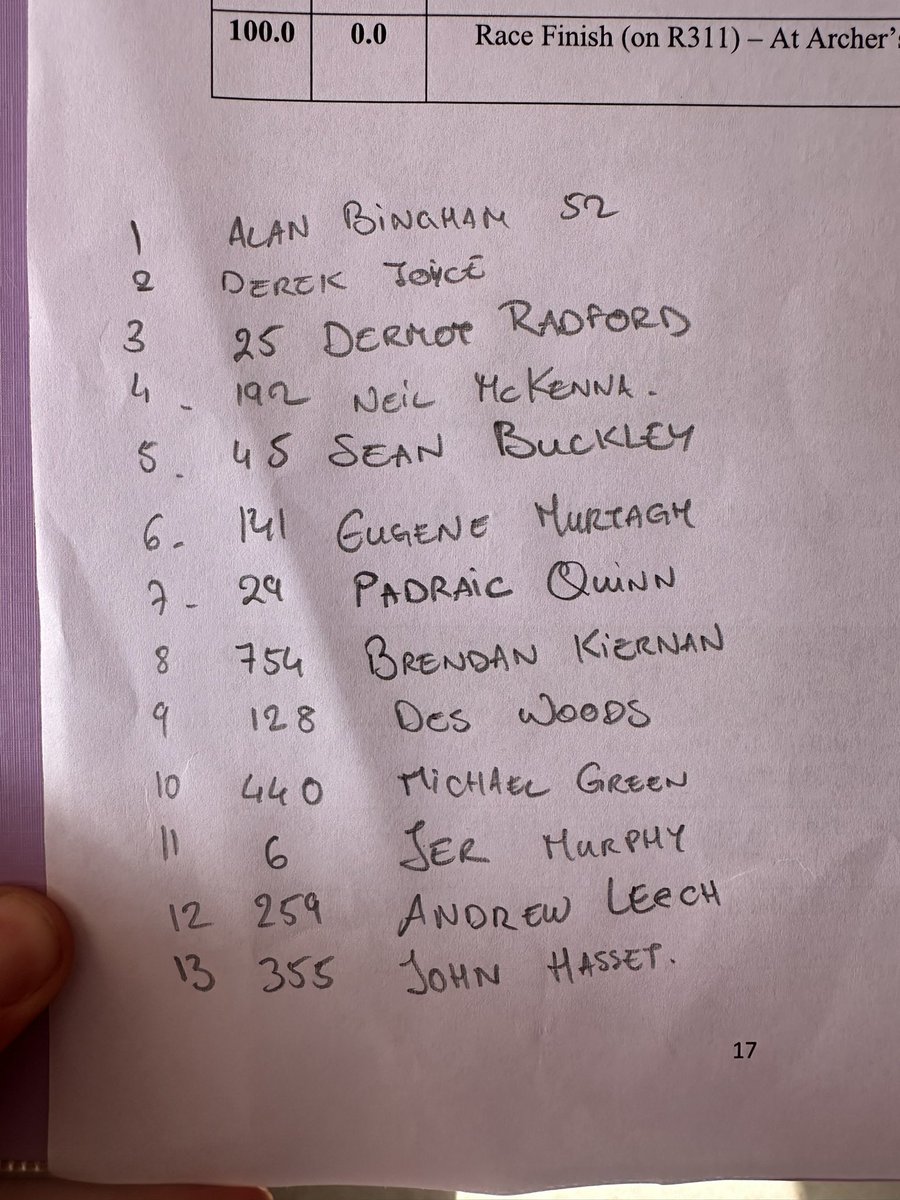 100.0 0.0 Race Finish (on R311) – At Archer's
1 ALAN BINGHAM 52
2 DEREK JOYCE
3 25 DERMOT RADFORD
4 - 192 NEIL McKENNA.
5 . 45 SEAN BUCKLEY
6 - 141 EUGENE MURTAGH
7 - 29 PADRAIC QUINN
8 754 BRENDAN KIERNAN
9 128 DES WOODS
10 440 MICHAEL GREEN
11 6 JER MURPHY
12 259 ANDREW LEECH
13 355 JOHN HASSET.
17